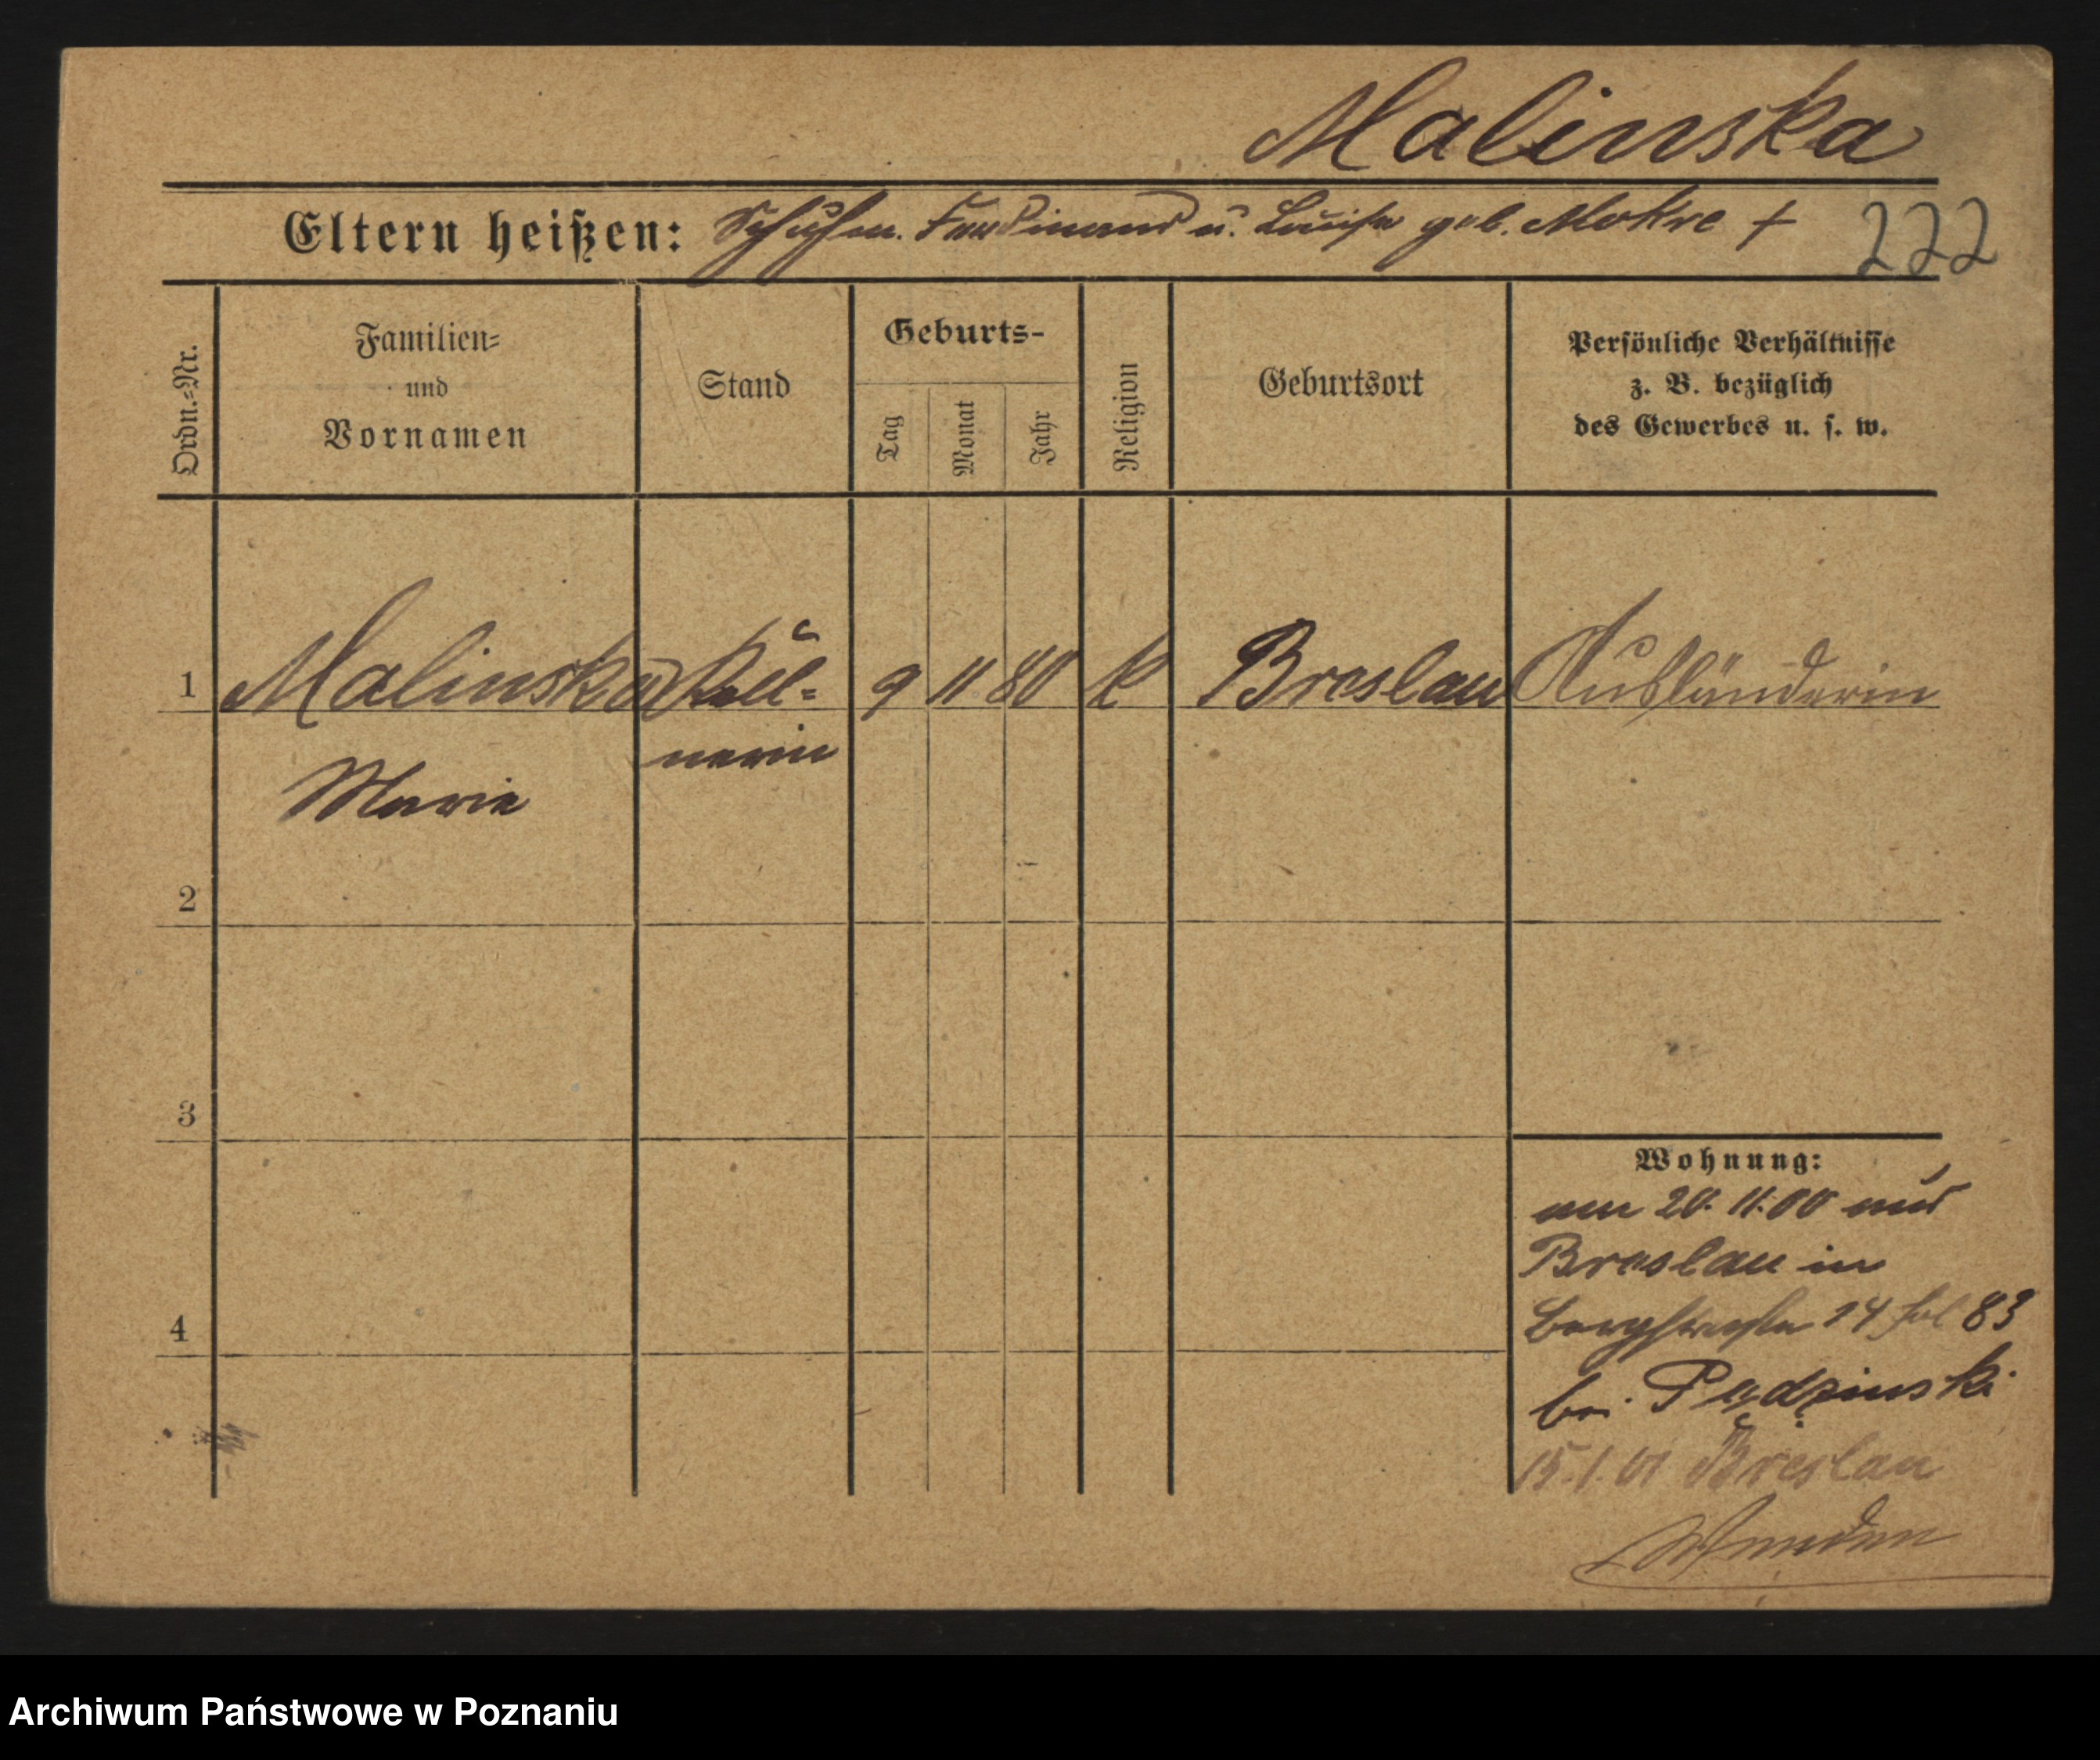 Malinska
Eltern heißen: Schuhm. Ferdinand u. Louise geb. Mokre †
222
Ordn.-Nr.
Familien-
und
Vornamen
Stand
Geburts-
Tag
Monat
Jahr
Religion
Geburtsort
Persönliche Verhältnisse
z. B. bezüglich
des Gewerbes u. s. w.
1 Malinska Kell- 9 11 80 k Breslau Ausländerin
nerin
Marie
2
3
4
Wohnung:
am 20.11.00 aus
Breslau in
Bergstraße 14 fol 83
bei Pędzinski
15.1.01 Breslau